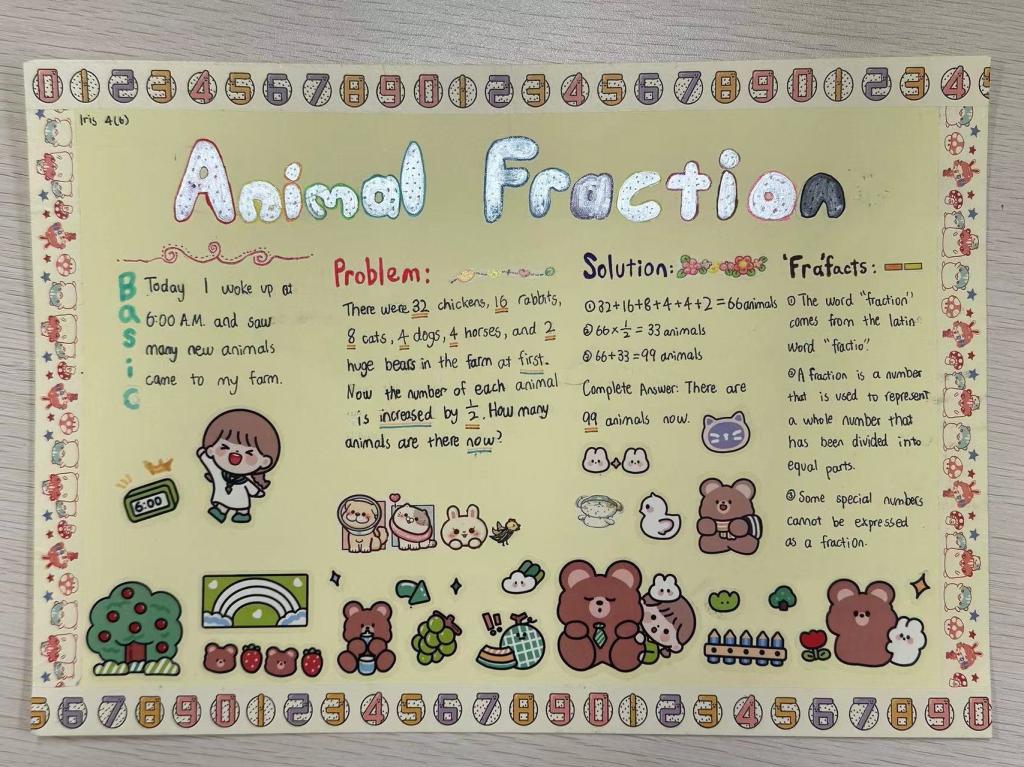 0 1 2 3 4 5 6 7 8 9 0 1 2 3 4 5 6 7 8 9 0 1 2 3 4
Iris 4(6)
Animal Fraction
Basic
Today I woke up at
6:00 A.M. and saw
many new animals
came to my farm.
6:00
Problem:
There were 32 chickens, 16 rabbits,
8 cats, 4 dogs, 4 horses, and 2
huge bears in the farm at first.
Now the number of each animal
is increased by 1/2. How many
animals are there now?
Solution:
① 32+16+8+4+4+2=66animals
② 66×1/2=33 animals
③ 66+33=99 animals
Complete Answer: There are
99 animals now.
'Fra'facts:
① The word "fraction"
comes from the latin
word "fractio".
② A fraction is a number
that is used to represent
a whole number that
has been divided into
equal parts.
③ Some special numbers
cannot be expressed
as a fraction.
!!
5 6 7 8 9 0 1 2 3 4 5 6 7 8 9 0 1 2 3 4 5 6 7 8 9 0